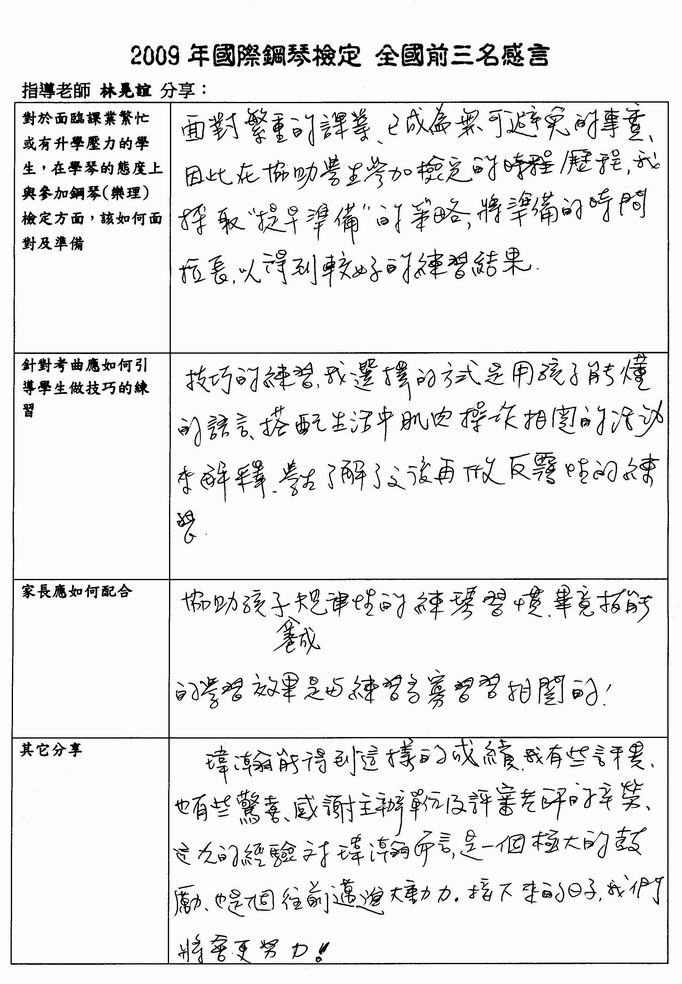 2009 年國際鋼琴檢定 全國前三名感言
指導老師 林晃誼 分享：
對於面臨課業繁忙
或有升學壓力的學
生，在學琴的態度上
與參加鋼琴(樂理)
檢定方面，該如何面
對及準備
面對繁重的課業、已成為無可避免的事實、
因此在協助學生參加檢定的時程歷程，我
採取"提早準備"的策略，將準備的時間
拉長，以得到較好的練習結果．
針對考曲應如何引
導學生做技巧的練
習
技巧的練習，我選擇的方式是用孩子能懂
的語言、搭配生活中肌肉操作相關的活動
來解釋、學生了解了之後再做反覆性的練
習．
家長應如何配合
協助孩子養成規律性的練琴習慣、畢竟技能
的學習效果是與練習多寡習習相關的！
其它分享
瑋瀚能得到這樣的成績，我有些訝異、
也有些驚喜、感謝主辦單位及評審老師的辛勞、
這次的經驗對瑋瀚而言，是一個極大的鼓
勵、也是個往前邁進大動力．接下來的日子，我們
將會更努力！